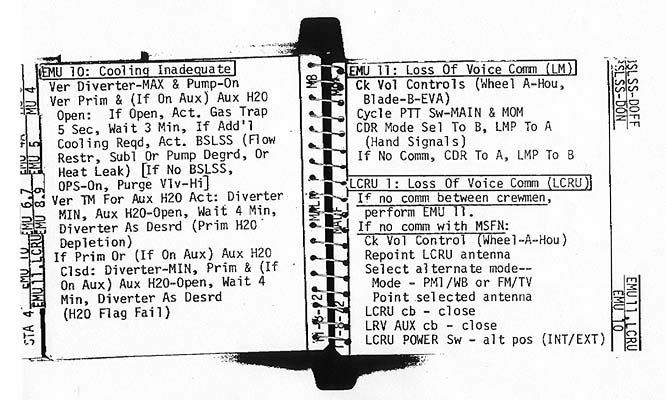 EMU 10: Cooling Inadequate
Ver Diverter-MAX & Pump-On
Ver Prim & (If On Aux) Aux H2O
Open: If Open, Act. Gas Trap
5 Sec, Wait 3 Min, If Add'l
Cooling Reqd, Act. BSLSS (Flow
Restr, Subl Or Pump Degrd, Or
Heat Leak) [If No BSLSS,
OPS-On, Purge Vlv-Hi]
Ver TM For Aux H2O Act: Diverter
MIN, Aux H2O-Open, Wait 4 Min,
Diverter As Desrd (Prim H2O
Depletion)
If Prim Or (If On Aux) Aux H2O
Clsd: Diverter-MIN, Prim & (If
On Aux) Aux H2O-Open, Wait 4
Min, Diverter As Desrd
(H2O Flag Fail)
MU 4
EMU 5
EMU 6,7
EMU 8,9
EMU 10
EMU11,LCRU
STA 4
EMU 11: Loss Of Voice Comm (LM)
Ck Vol Controls (Wheel A-Hou,
Blade-B-EVA)
Cycle PTT Sw-MAIN & MOM
CDR Mode Sel To B, LMP To A
(Hand Signals)
If No Comm, CDR To A, LMP To B
LCRU 1: Loss Of Voice Comm (LCRU)
If no comm between crewmen,
perform EMU 11.
If no comm with MSFN:
Ck Vol Control (Wheel-A-Hou)
Repoint LCRU antenna
Select alternate mode--
Mode - PM1/WB or FM/TV
Point selected antenna
LCRU cb - close
LRV AUX cb - close
LCRU POWER Sw - alt pos (INT/EXT)
SLSS-DOFF
SLSS-DON
EMU11,LCRU
EMU 10